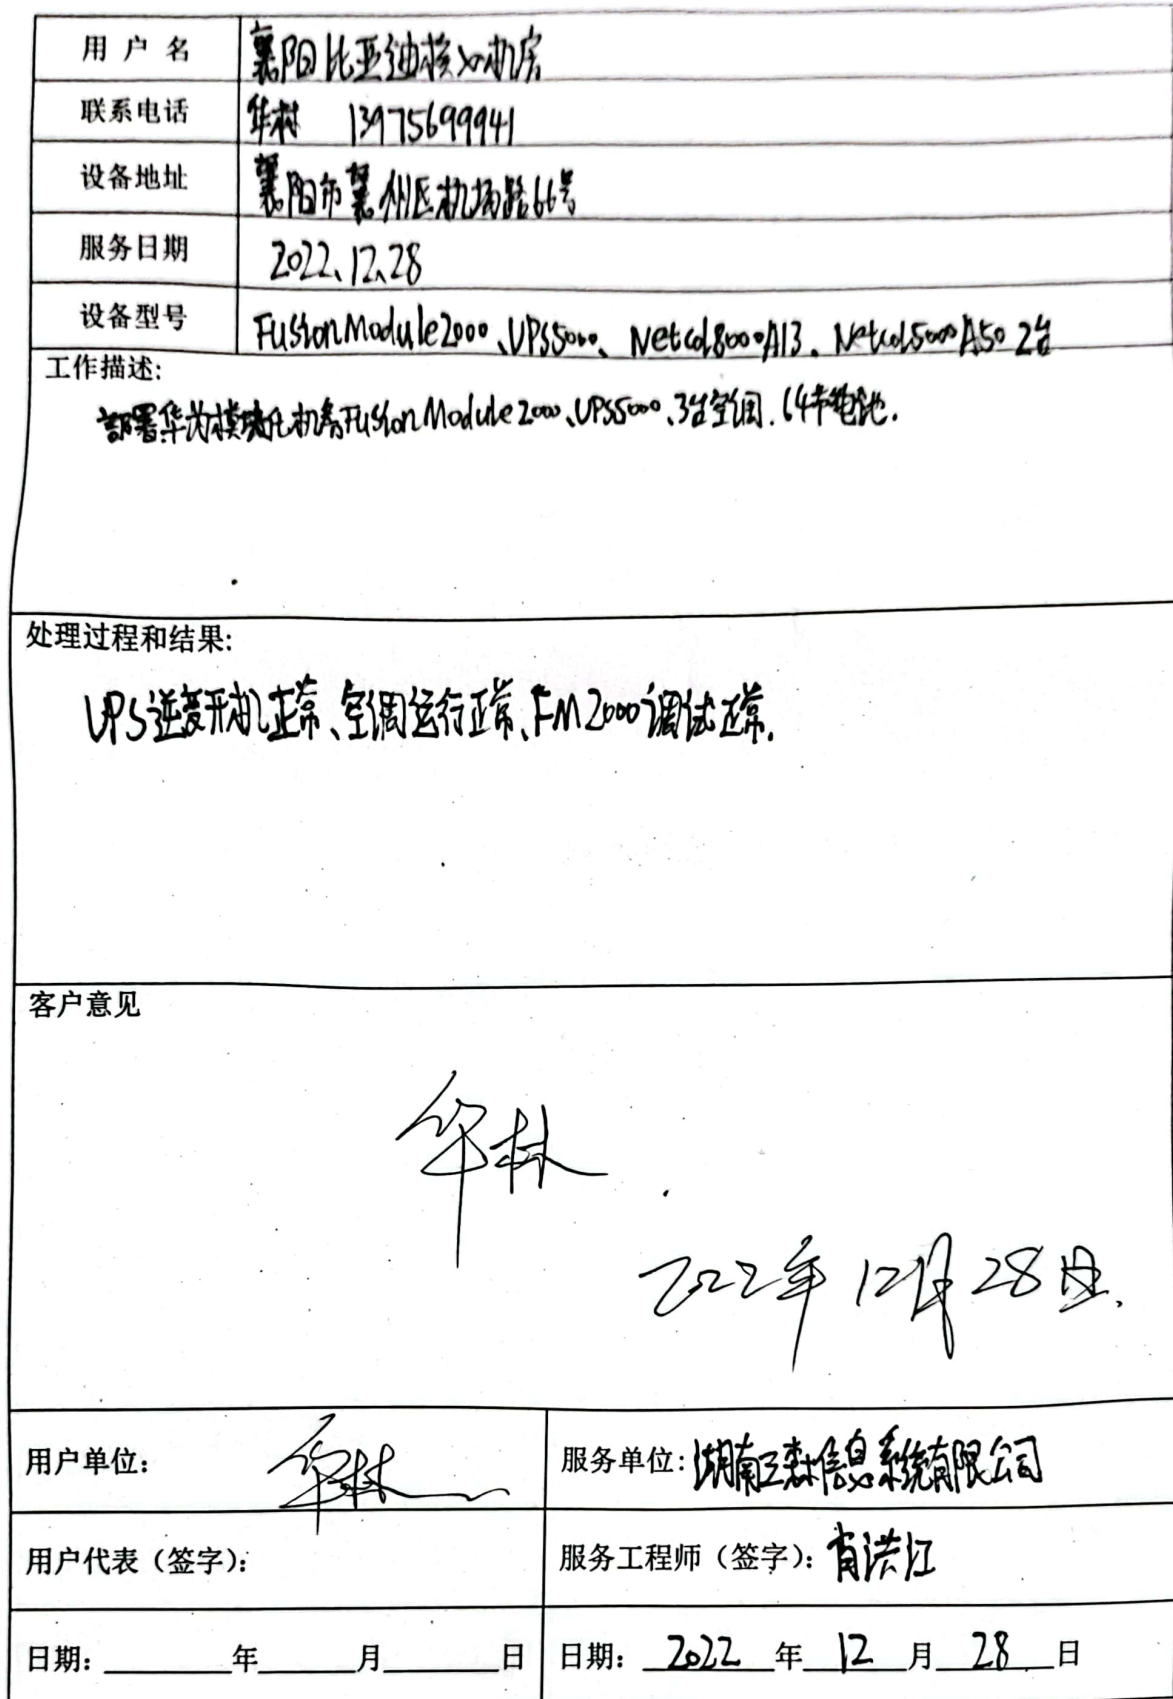 用户名 襄阳比亚迪核心机房
联系电话 华林 13975699941
设备地址 襄阳市襄州区机场路66号
服务日期 2022、12、28
设备型号 FusionModule2000、UPS5000、Netcol8000A13、Netcol5000A50 2台
工作描述:
部署华为模块化机房FusionModule2000、UPS5000、3台空调、64节电池.
处理过程和结果:
UPS逆变开机正常、空调运行正常、FM2000调试正常.
客户意见
华林
2022年12月28日.
用户单位: 华林 服务单位: 湖南三森信息系统有限公司
用户代表（签字）: 服务工程师（签字）: 肖洪江
日期: ____年____月____日 日期: 2022 年 12 月 28 日